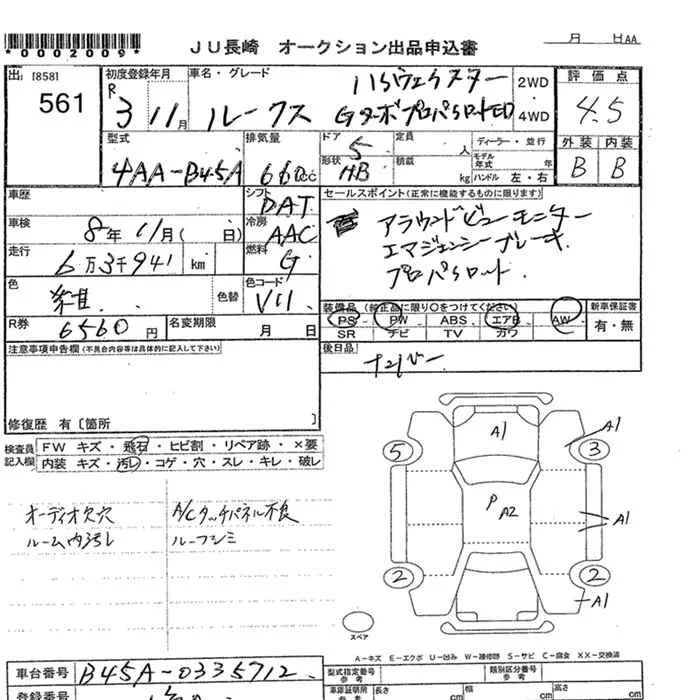 *0002009*
JU長崎 オークション出品申込書
月 日AA
出 [858]
561
初度登録年月
R
3 11月
車名・グレード
ルークス
ハイウェイスター
Gターボプロパイロット ED
2WD
4WD
評価点
4.5
外装 内装
B B
型式
4AA-B45A
排気量
660cc
ドア
5
形状
HB
定員
人
積載
kg
ディーラー・並行
モデル年式 年
ハンドル 左・右
車歴
シフト
DAT
車検
8年 11月( 日)
冷房
AAC
走行
6万3千941 km
燃料
G
色
紺
色替
色コード
R券
6560円
名変期限
月 日
セールスポイント(正常に機能するものに限ります)
アラウンドビューモニター
エマージェンシーブレーキ
プロパイロット
装備品(純正品に限り〇をつけてください)
PS PW ABS エアB AW
SR ナビ TV カワ
新車保証書
有・無
後日品
ナンバー
注意事項申告欄(不具合内容等は具体的に記入して下さい)
修復歴 有〔箇所 〕
検査員記入欄
FW キズ・飛石・ヒビ割・リペア跡・×要
内装 キズ・汚レ・コゲ・穴・スレ・キレ・破レ
オーディオ欠穴
A/Cタッチパネル不良
ルーム内汚レ
ルーフシミ
A1
A1
5
3
P
A2
A1
2
2
A1
スペア
A-キズ E-エクボ U-凹み W-補修跡 S-サビ C-腐食 XX-交換済
車台番号
B45A-0335712
型式指定番号
参考
類別区分番号
参考
登録番号
車庫証明用
参考
長さ
cm
幅
cm
高さ
cm